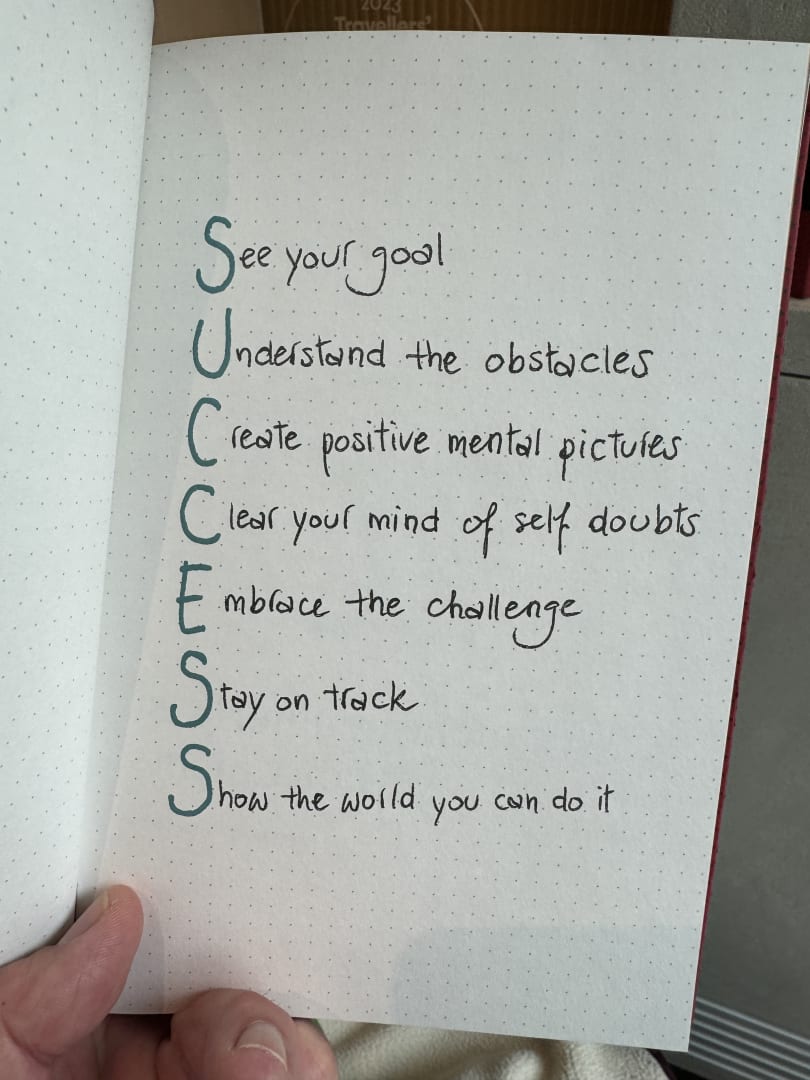 2023
Travellers'
See your goal
Understand the obstacles
Create positive mental pictures
Clear your mind of self doubts
Embrace the challenge
Stay on track
Show the world you can do it